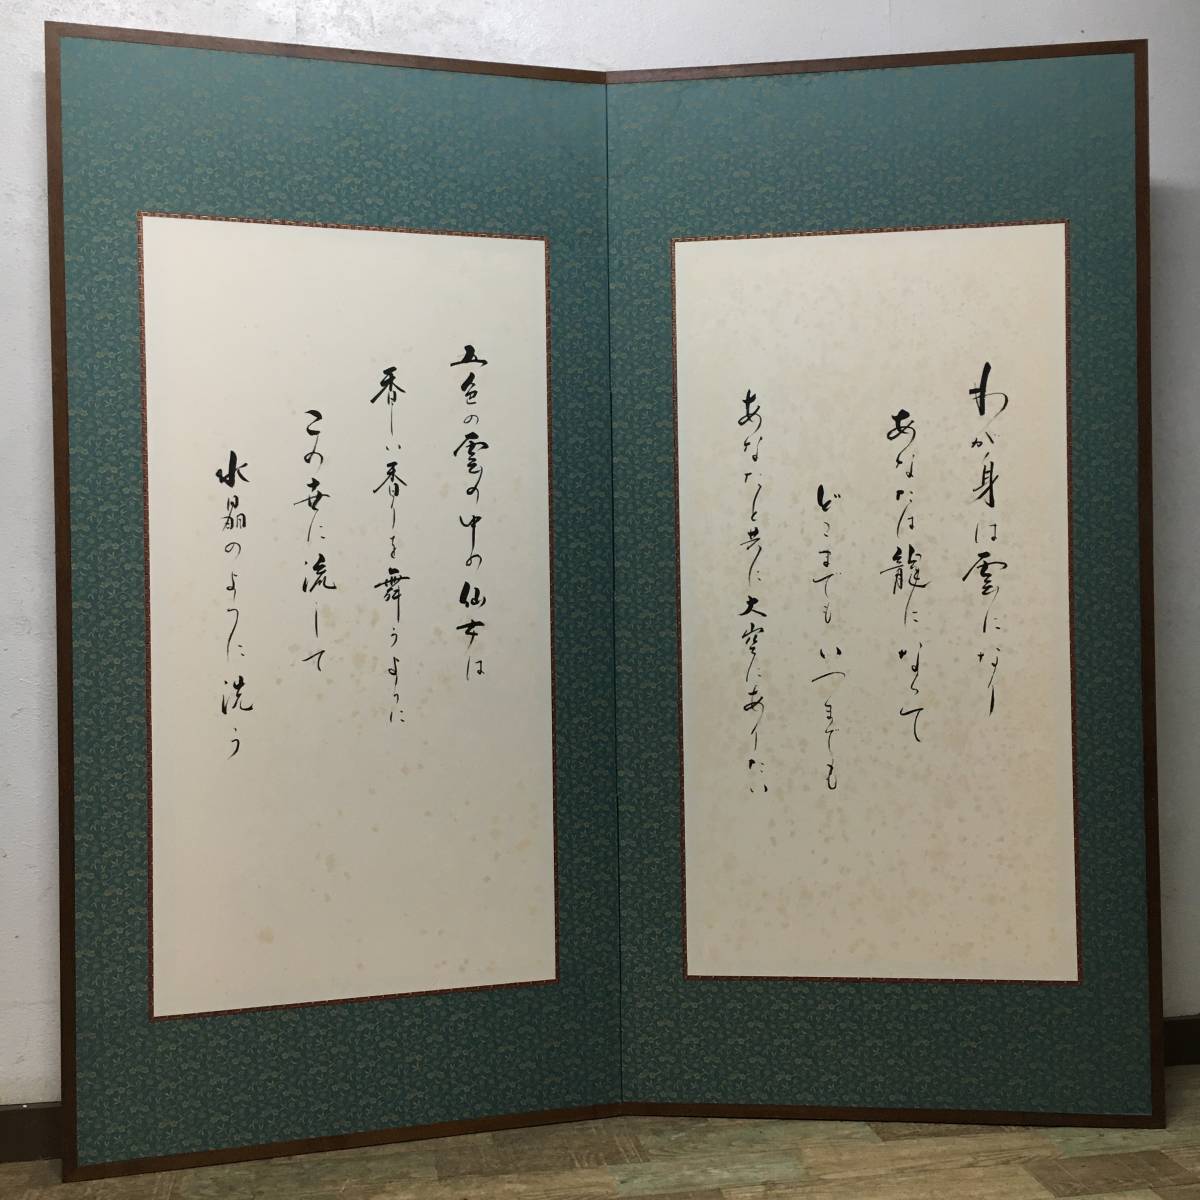 わが身は雲になり
あなたは龍になって
どこまでもいつまでも
あなたと共に大空にありたい
五色の雲の中の仙女は
香しい香りを舞うように
この世に流して
水晶のように洗う